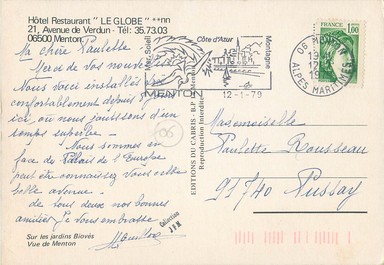 Hôtel Restaurant "LE GLOBE" **nn
21, Avenue de Verdun - Tél: 35.73.03
06500 Menton
Ma chère Paulette -
Merci de vos nouvelles
Nous voici installés
confortablement depuis
ici, où nous jouissons d'un
temps superbe -
Nous sommes en
face du Palais de l'Europe
peut être connaissez vous cette
belle avenue -
de tous deux nos bonnes
amitiés Je vous embrasse
Sur les jardins Biovès
Vue de Menton
Collection
JFM
EDITIONS DU CABRIS - B.P.
Reproduction Interdite
Mer Soleil
Côte d'Azur
Montagne
MENTON
12-1-79
06 MENTON
ALPES MARITIMES
1,00
Mademoiselle
Paulette Rousseau
91740 Pussay